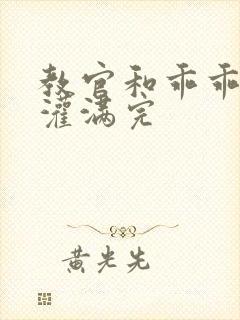 教官和乖乖
灌满完
黄光先